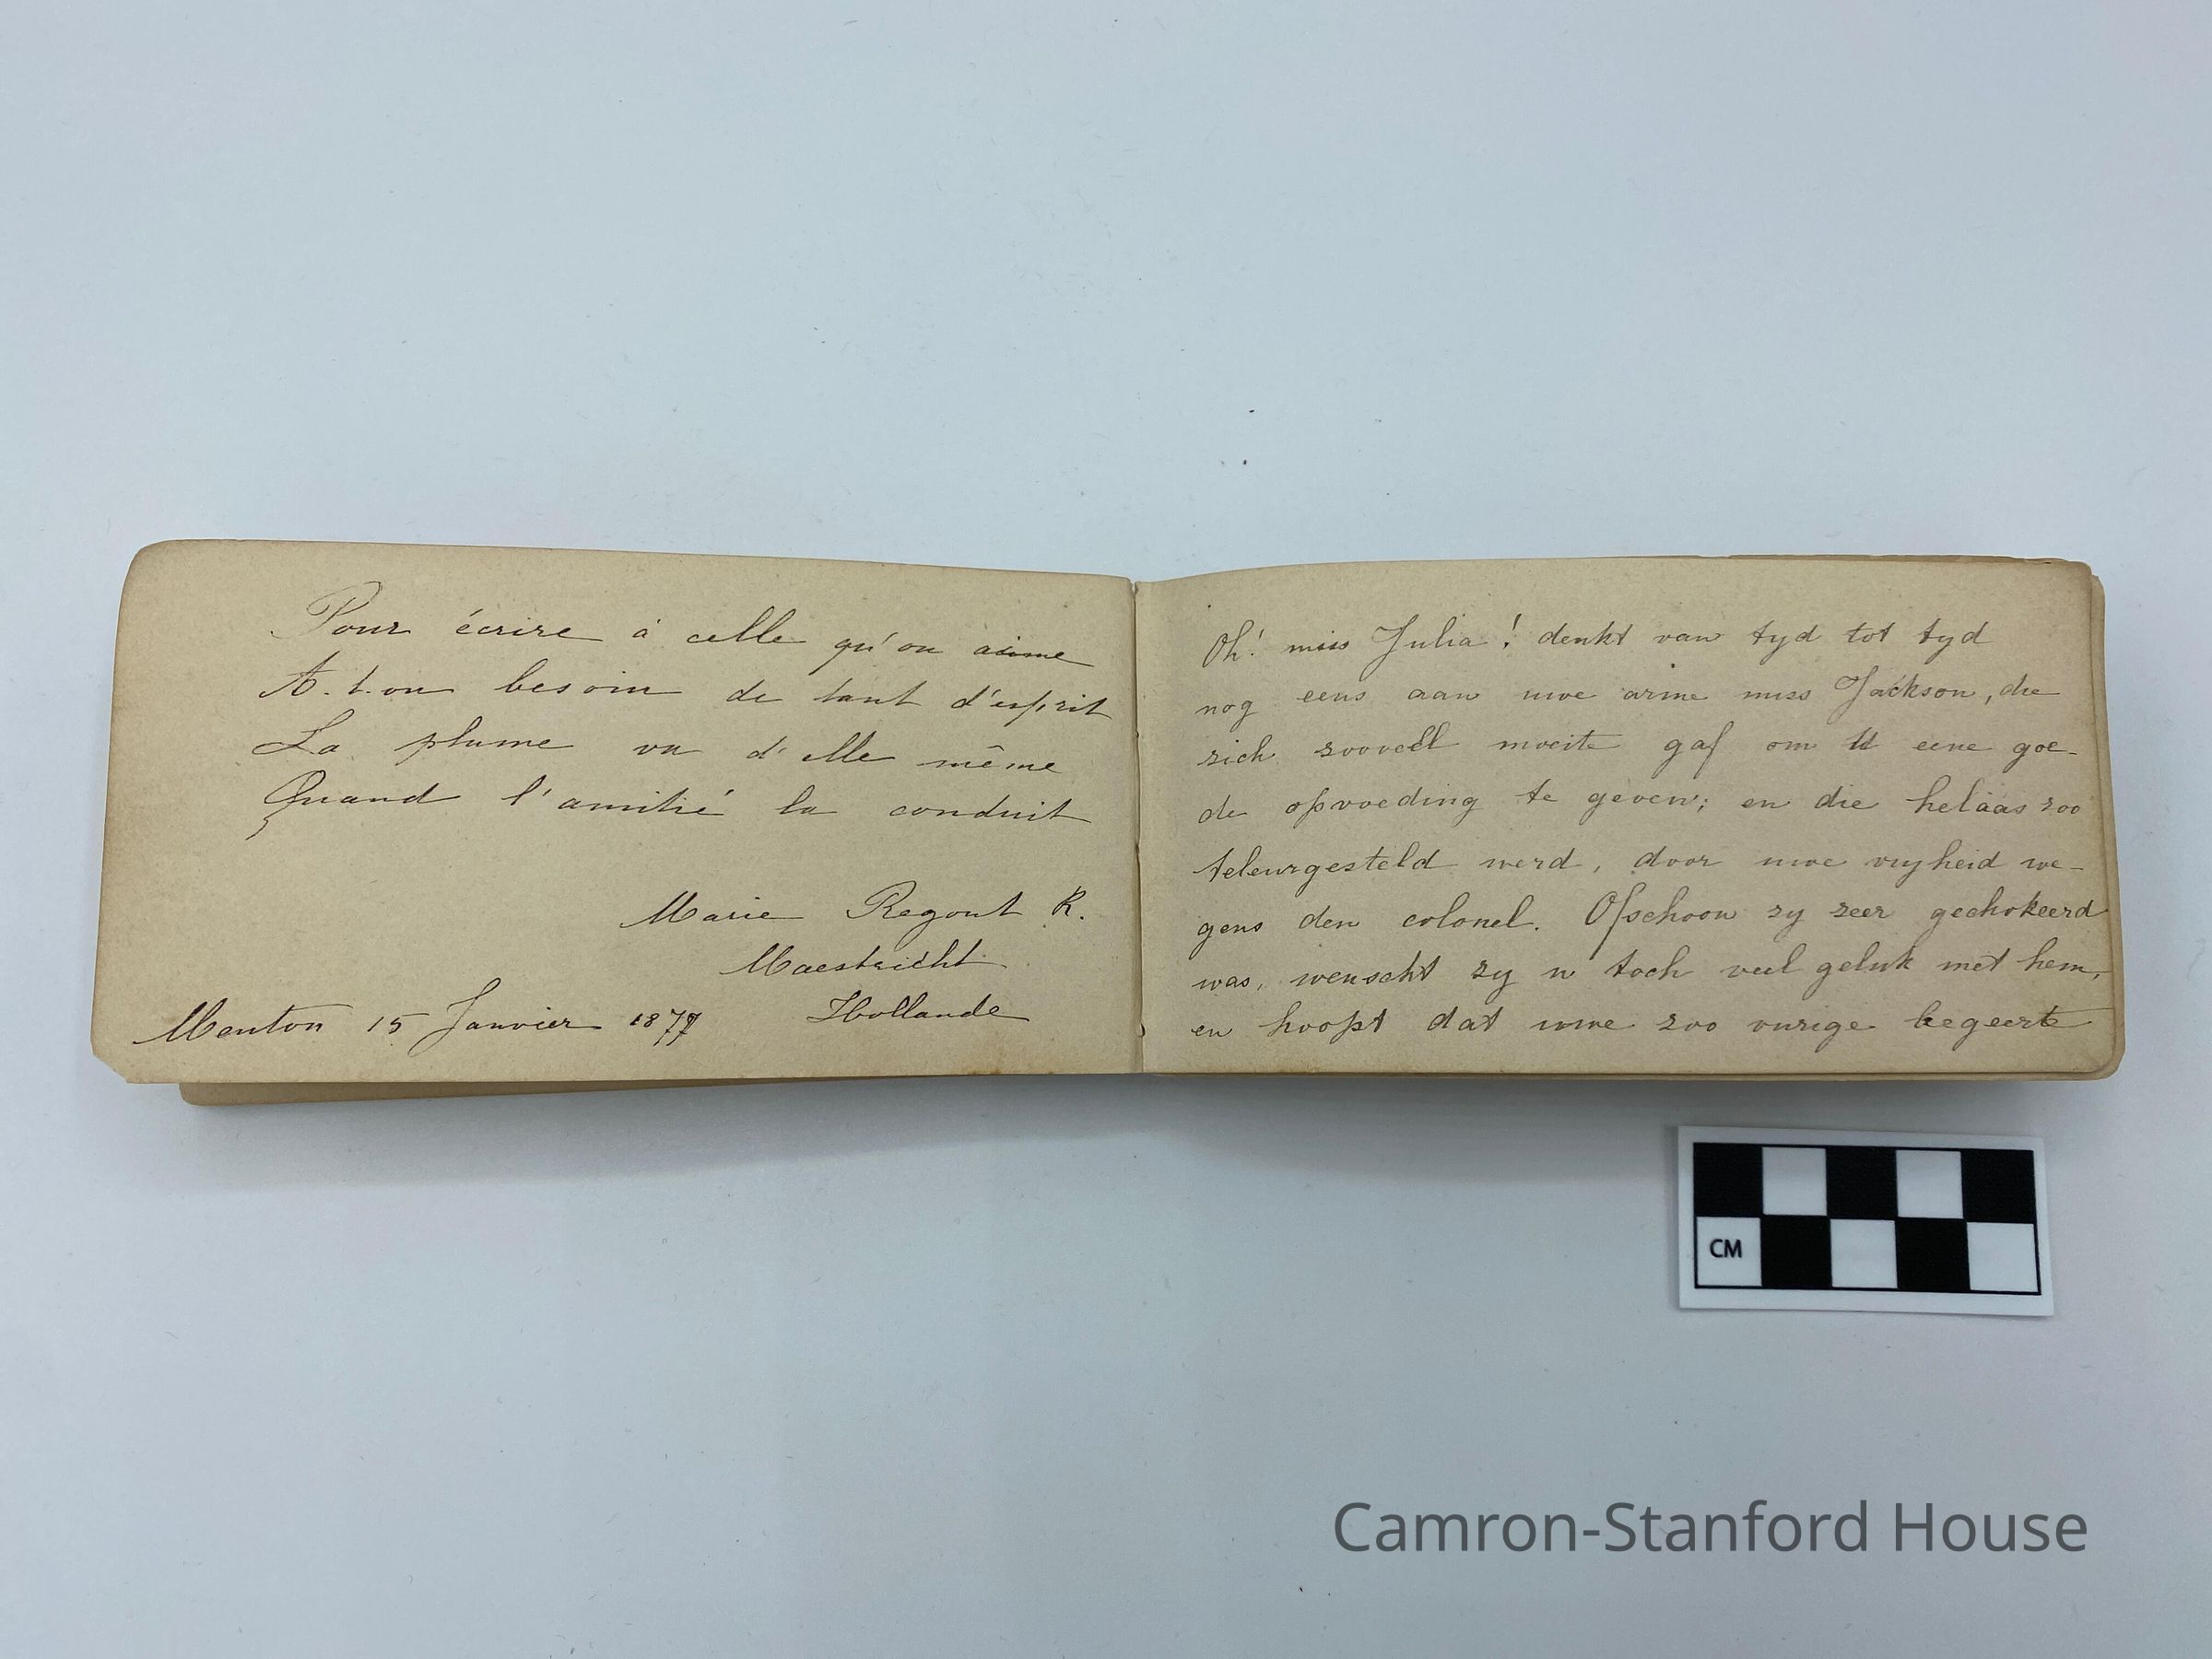 Pour écrire à celle qu'on aime
A-t-on besoin de tant d'esprit
La plume va d'elle même
Quand l'amitié la conduit
Marie Regout R.
Maestricht
Hollande
Menton 15 Janvier 1877
Oh! miss Julia! denkt van tyd tot tyd
nog eens aan uwe arme miss Jackson, die
zich zooveel moeite gaf om U eene goe-
de opvoeding te geven; en die helaas zoo
teleurgesteld werd, door uwe vryheid we-
gens den colonel. Ofschoon zy zeer gechokeerd
was, wenscht zy u toch veel geluk met hem,
en hoopt dat uwe zoo vurige begeerte
CM
Camron-Stanford House